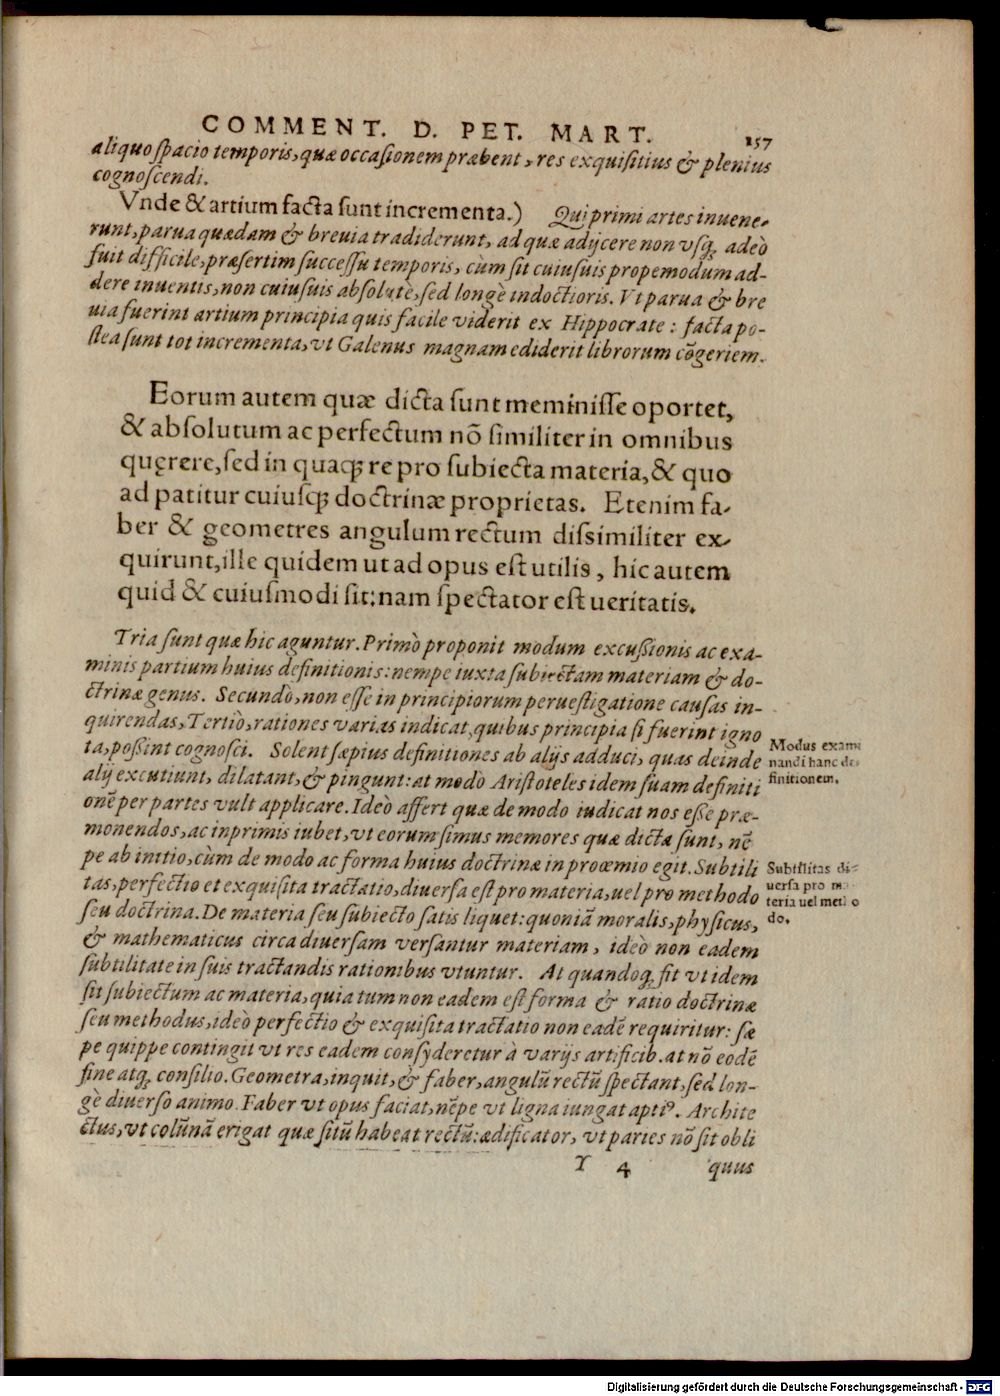 COMMENT. D. PET. MART. 157
aliquo ſpacio temporis, quæ occaſionem præbent, res exquiſitius & plenius
cognoſcendi.
Vnde & artium facta ſunt incrementa.) Qui primi artes inuene-
runt, parua quædam & breuia tradiderunt, ad quæ adijcere non vſq; adeò
fuit difficile, præſertim ſucceſſu temporis, cùm ſit cuiuſuis propemodum ad-
dere inuentis, non cuiuſuis abſolutè, ſed longè indoctioris. Vt parua & bre
uia fuerint artium principia quis facile viderit ex Hippocrate: facta po-
ſtea ſunt tot incrementa, vt Galenus magnam ediderit librorum cõgeriem.
Eorum autem quæ dicta ſunt meminiſſe oportet,
& abſolutum ac perfectum nõ ſimiliter in omnibus
quęrere, ſed in quaq; re pro ſubiecta materia, & quo
ad patitur cuiuſq; doctrinæ proprietas. Etenim fa-
ber & geometres angulum rectum diſsimiliter ex-
quirunt, ille quidem ut ad opus eſt utilis, hic autem
quid & cuiuſmodi ſit: nam ſpectator eſt ueritatis.
Tria ſunt quæ hic aguntur. Primò proponit modum excuſsionis ac exa-
minis partium huius definitionis: nempe iuxta ſubiectam materiam & do-
ctrinæ genus. Secundò, non eſſe in principiorum perueſtigatione cauſas in-
quirendas, Tertiò, rationes varias indicat, quibus principia ſi fuerint igno
ta, poſsint cognoſci. Solent ſæpius definitiones ab alijs adduci, quas deinde
alij excutiunt, dilatant, & pingunt: at modò Ariſtoteles idem ſuam definiti
onẽ per partes vult applicare. Ideò affert quæ de modo iudicat nos eſſe præ-
monendos, ac inprimis iubet, vt eorum ſimus memores quæ dicta ſunt, nẽ
pe ab initio, cùm de modo ac forma huius doctrinæ in proœmio egit. Subtili
tas, perfectio et exquiſita tractatio, diuerſa eſt pro materia, uel pro methodo
ſeu doctrina. De materia ſeu ſubiecto ſatis liquet: quoniã moralis, phyſicus,
& mathematicus circa diuerſam verſantur materiam, ideò non eadem
ſubtilitate in ſuis tractandis rationibus vtuntur. At quandoq; ſit vt idem
ſit ſubiectum ac materia, quia tum non eadem eſt forma & ratio doctrinæ
ſeu methodus, ideò perfectio & exquiſita tractatio non eadẽ requiritur: ſæ
pe quippe contingit vt res eadem conſyderetur à varijs artificib. at nõ eodẽ
fine atq; conſilio. Geometra, inquit, & faber, angulũ rectũ ſpectant, ſed lon-
gè diuerſo animo. Faber vt opus faciat, nẽpe vt ligna iungat aptiꝰ. Archite
ctus, vt colũnã erigat quæ ſitũ habeat rectũ: ædificator, vt paries nõ ſit obli
Y 4 quus
Modus exami
nandi hanc de
finitionem.
Subtilitas di-
uerſa pro ma
teria uel metho
do.
Digitalisierung gefördert durch die Deutsche Forschungsgemeinschaft - DFG